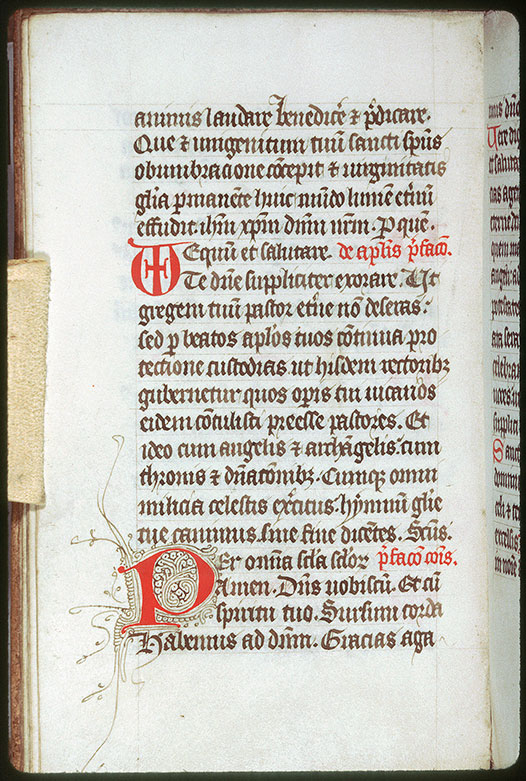 animis laudare benedicẽ ⁊ p̃dicare.
Que ⁊ unigenitum tuũ sancti sp̃us
obumbracione cõcepit ⁊ uirginitatis
gl̃ia ꝑmanẽte huic mũdo lumẽ et̃nũ
effudit ih̃m xp̃m dñm nr̃m. Ꝑ quẽ.
VEre dignũ et salutare de ap̃lis p̃facõ.
Te dñe suppliciter exorare. Ut
gregem tuũ pastor et̃ne nõ deseras.
sed ꝑ beatos ap̃los tuos cõtinua pro
tectione custodias. ut hisdem rectoribꝫ
gubernetur quos opis tui uicarios
eidem cõtulisti preesse pastores. Et
ideo cum angelis ⁊ archãgelis. cum
thronis ⁊ dñacõnibꝫ. Cumqꝫ omni
milicia celestis exc̃itus. hỹmnũ gl̃ie
tue canimus. sine fine dicẽtes. Sc̃us.
PEr om̃ia sc̃la sc̃loꝝ p̃facõ cõis.
Amen. Dñs uobiscũ. Et cũ
spiritu tuo. Sursum corda
Habemus ad dñm. Gracias aga